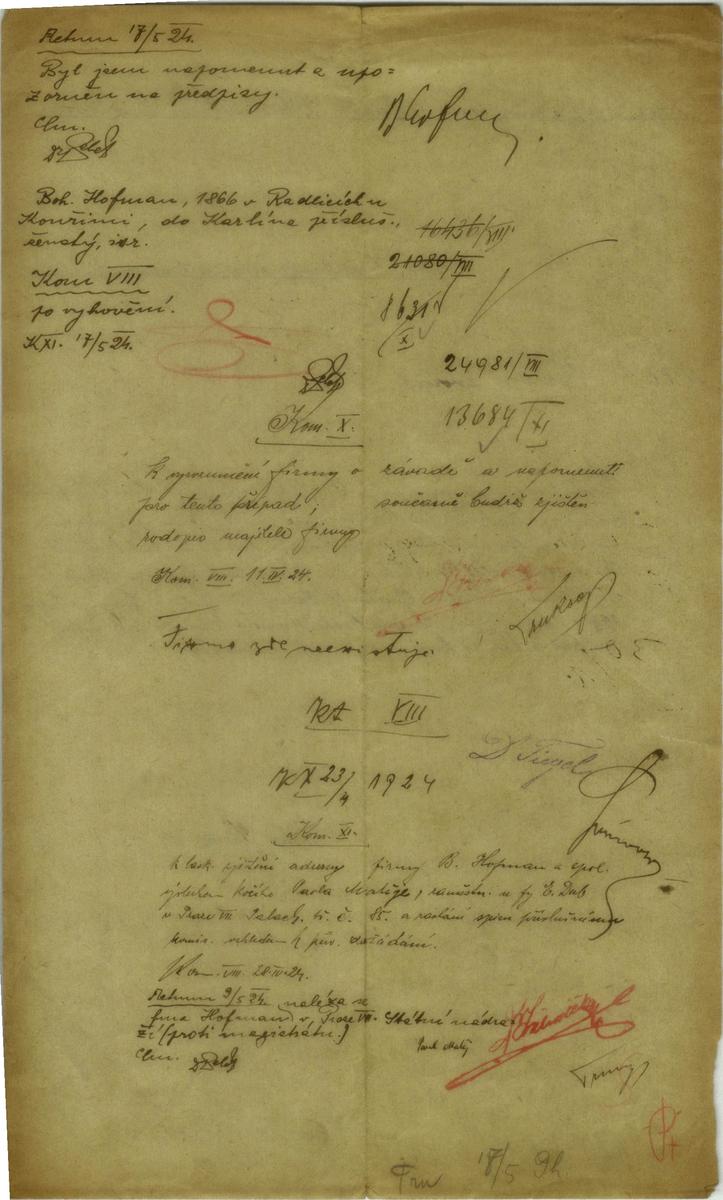 Retum 17/5 24.
Byl jsem napomenut a upo=
zorněn na předpisy.
BHofman
Chm.
Boh. Hofman, 1866 v Radlicích u
Kouřimi, do Karlína přísluš.,
ženatý, isr.
16436/VIII
21080/VIII
Kom VIII
po vyhovění.
8631
X
KXI. 17/5 24.
24981/VIII
13684/XI
Kom. X.
k vyrozumění firmy o závadě a napomenutí
pro tento případ; současně budiž zjištěn
majitele firmy
Kom. VIII. 11.IV.24.
Firma zde neexistuje.
VIII
KX 23/4 1924
Kom. XI.
k lask. zjištění adresy firmy B. Hofman a spol.
kočího Karla Matije, zaměstn. u fy E. Dub
v Praze VII Palack. tř. č. 85. a zaslání spisu příslušnému
komis. vzhledem k pův. dožádání.
Kom. VIII. 28.IV.24.
Retum 9/5 24. nalézá se
fma Hofman v Praze VII. Státní nádra=
ží (proti magistrátu.)
Chm.
17/5 9h